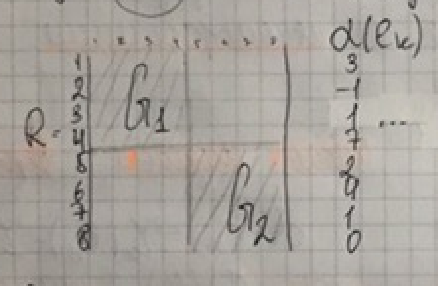 1 2 3 4 5 6 7 8
α(eₖ)
1 3
2 -1
3 G₁ 1 ...
R = 4 7
5 2
6 4
7 G₂ 1
8 0